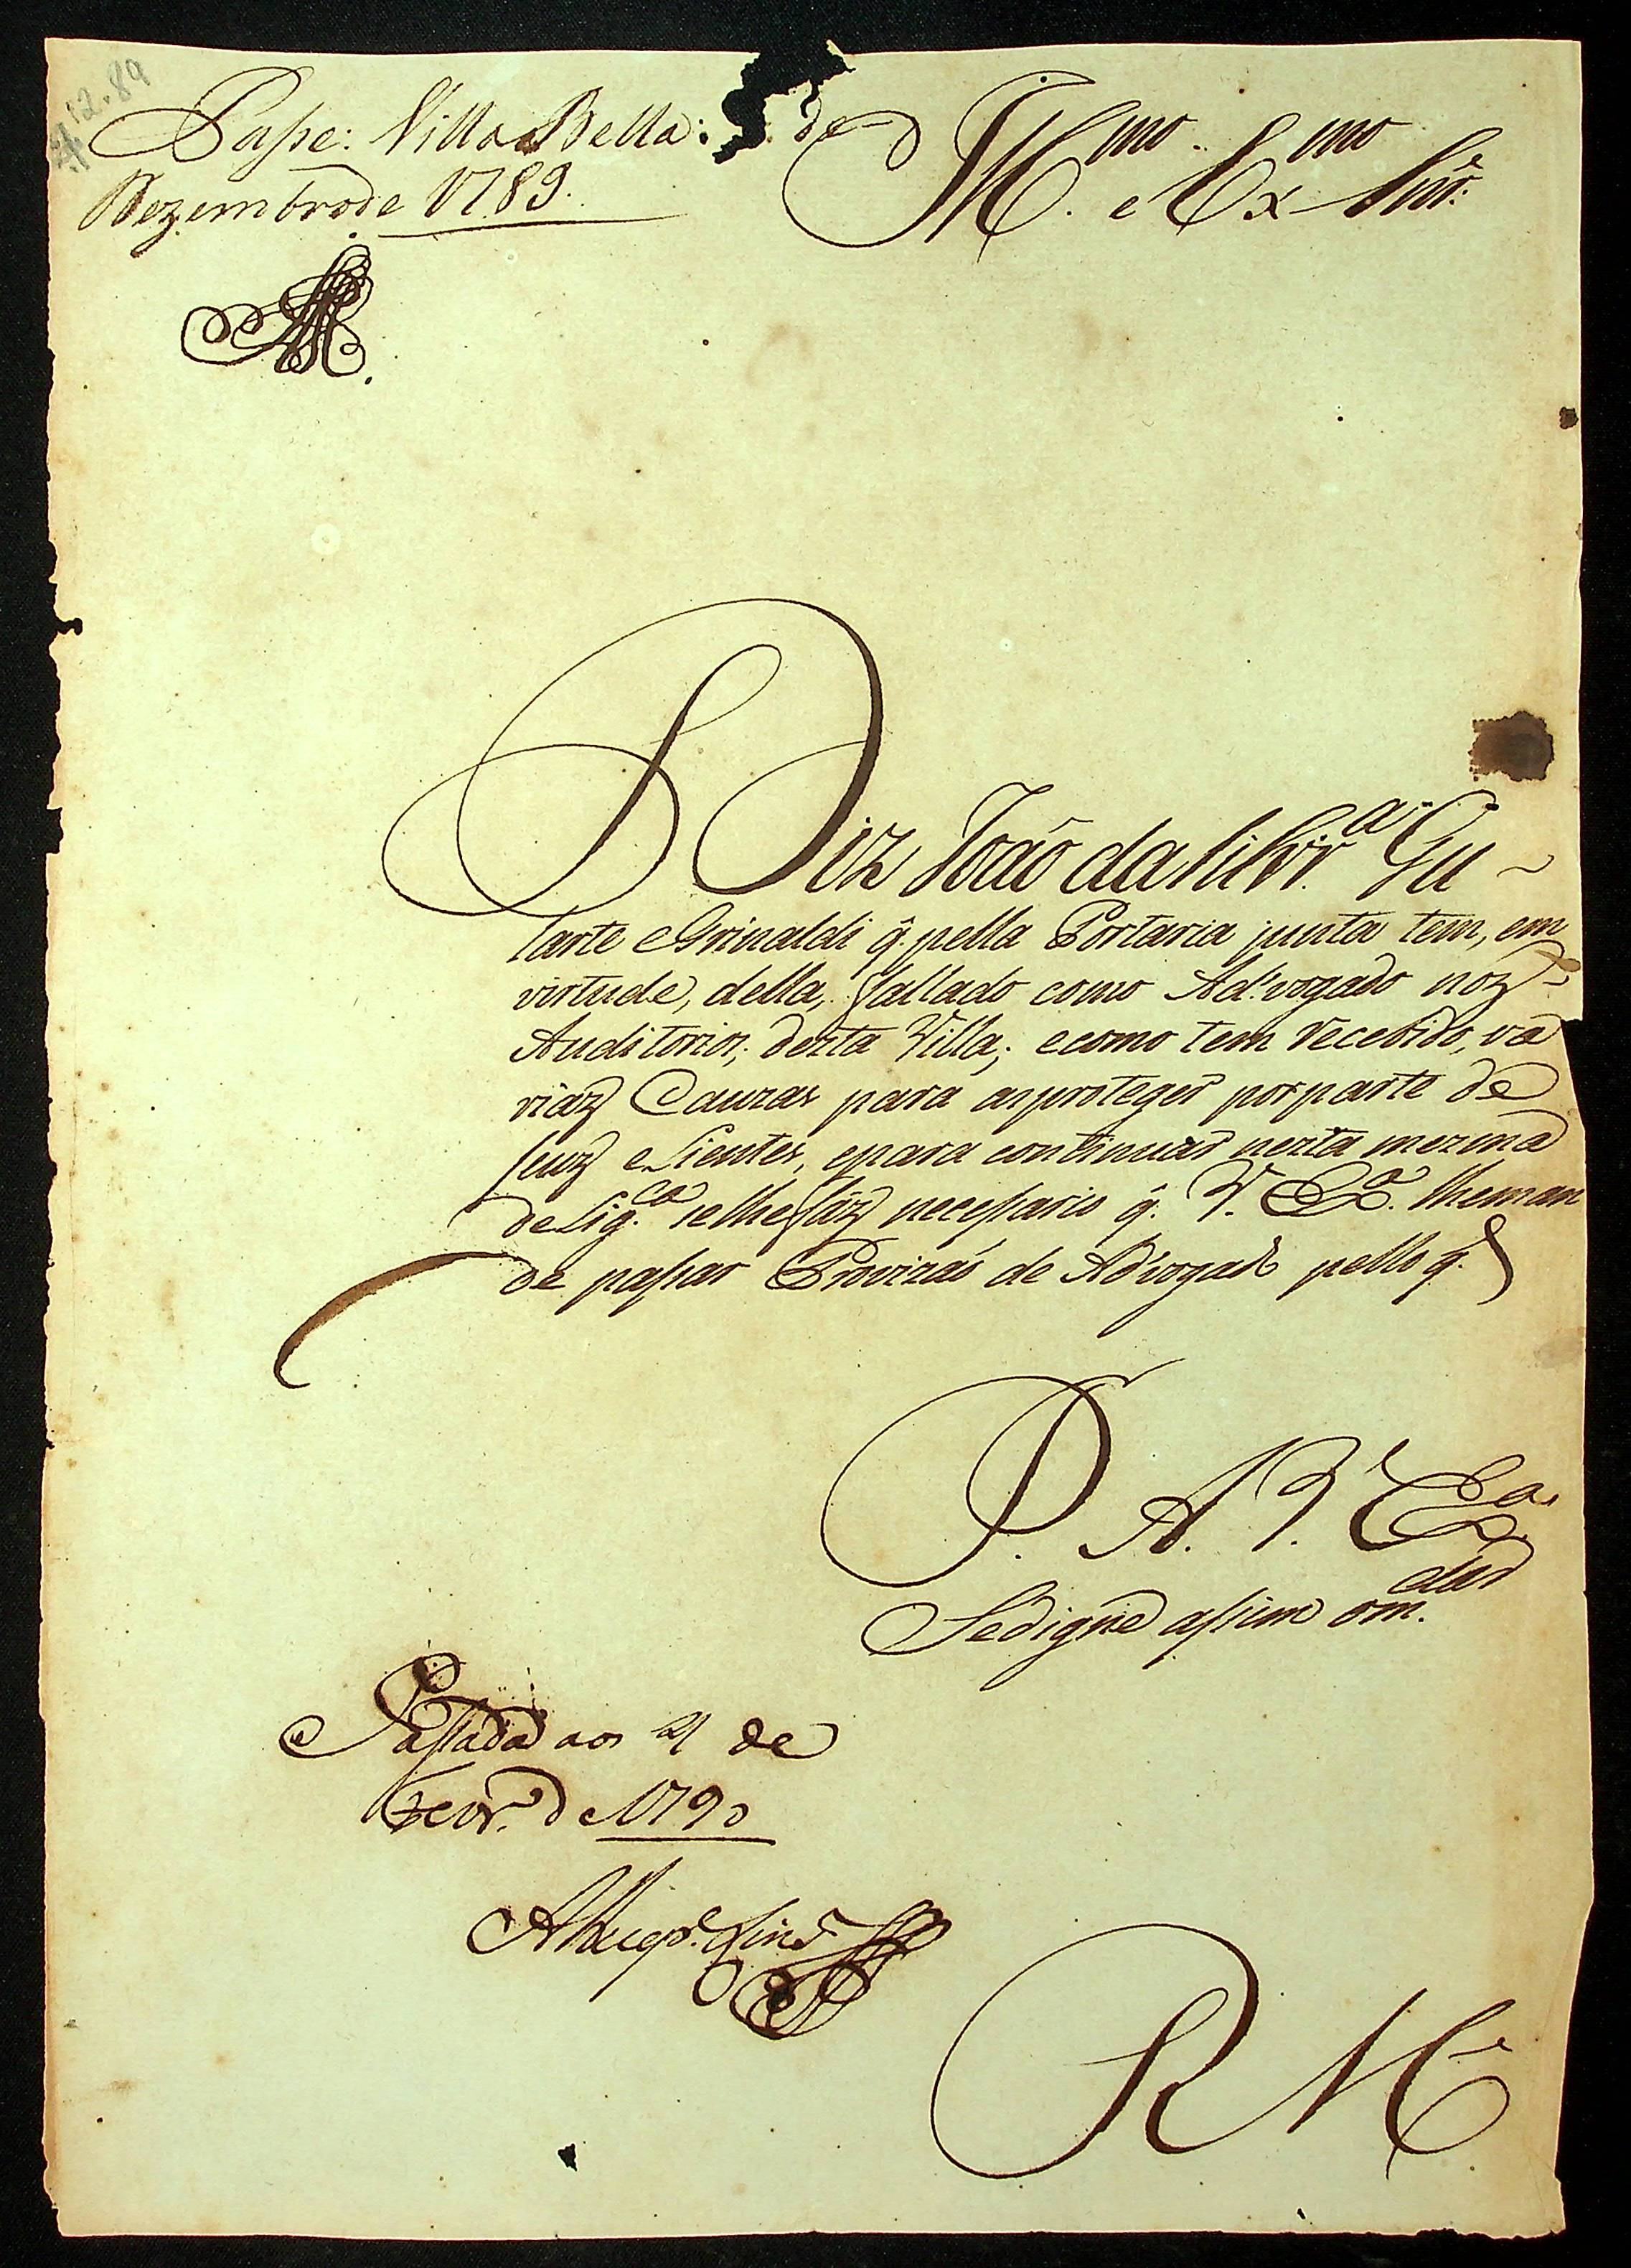 12.89
Passe: Villa Bella: de
Dezembro de 1789.
Ill.mo e Ex.mo Snr.
Diz João da Silvr.a Gu
larte Grinaldi q. pella Portaria junta tem, em
virtude, della, fallado como Ad.vogado noz
Auditorios; desta Villa; ecomo tem recebido, va
riaz Cauzas para asproteger porparte de
seuz Clientes, epara continuar nesta mesma
deLig.ca selhefáz necessario q. V. Ex.a lheman
de passar Provizaó de Advogado pello q.
P. A V. Ex.a
Sedigne assim om.
Passada aos 4 de
Fevr.o de 1790
R M.ce